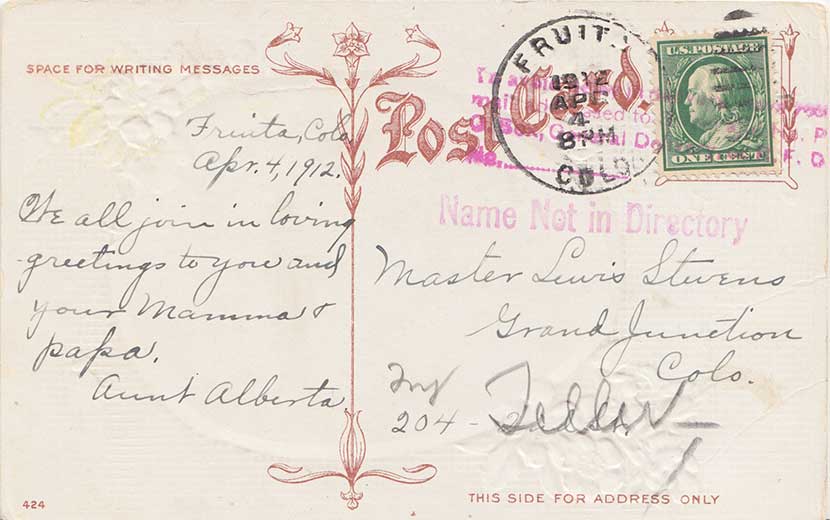 SPACE FOR WRITING MESSAGES
Post Card.
Fruita, Colo
Apr. 4, 1912.
We all join in loving
greetings to you and
your Mamma &
papa.
Aunt Alberta
FRUIT
1912
APR
4
8 PM
COLO
U.S. POSTAGE
ONE CENT
Name Not in Directory
Master Lewis Stevens
Grand Junction
Colo.
204 - Teller
424
THIS SIDE FOR ADDRESS ONLY